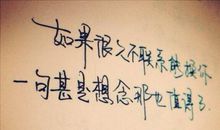 如果很久不联系能换你
一句甚是想念那也值得了